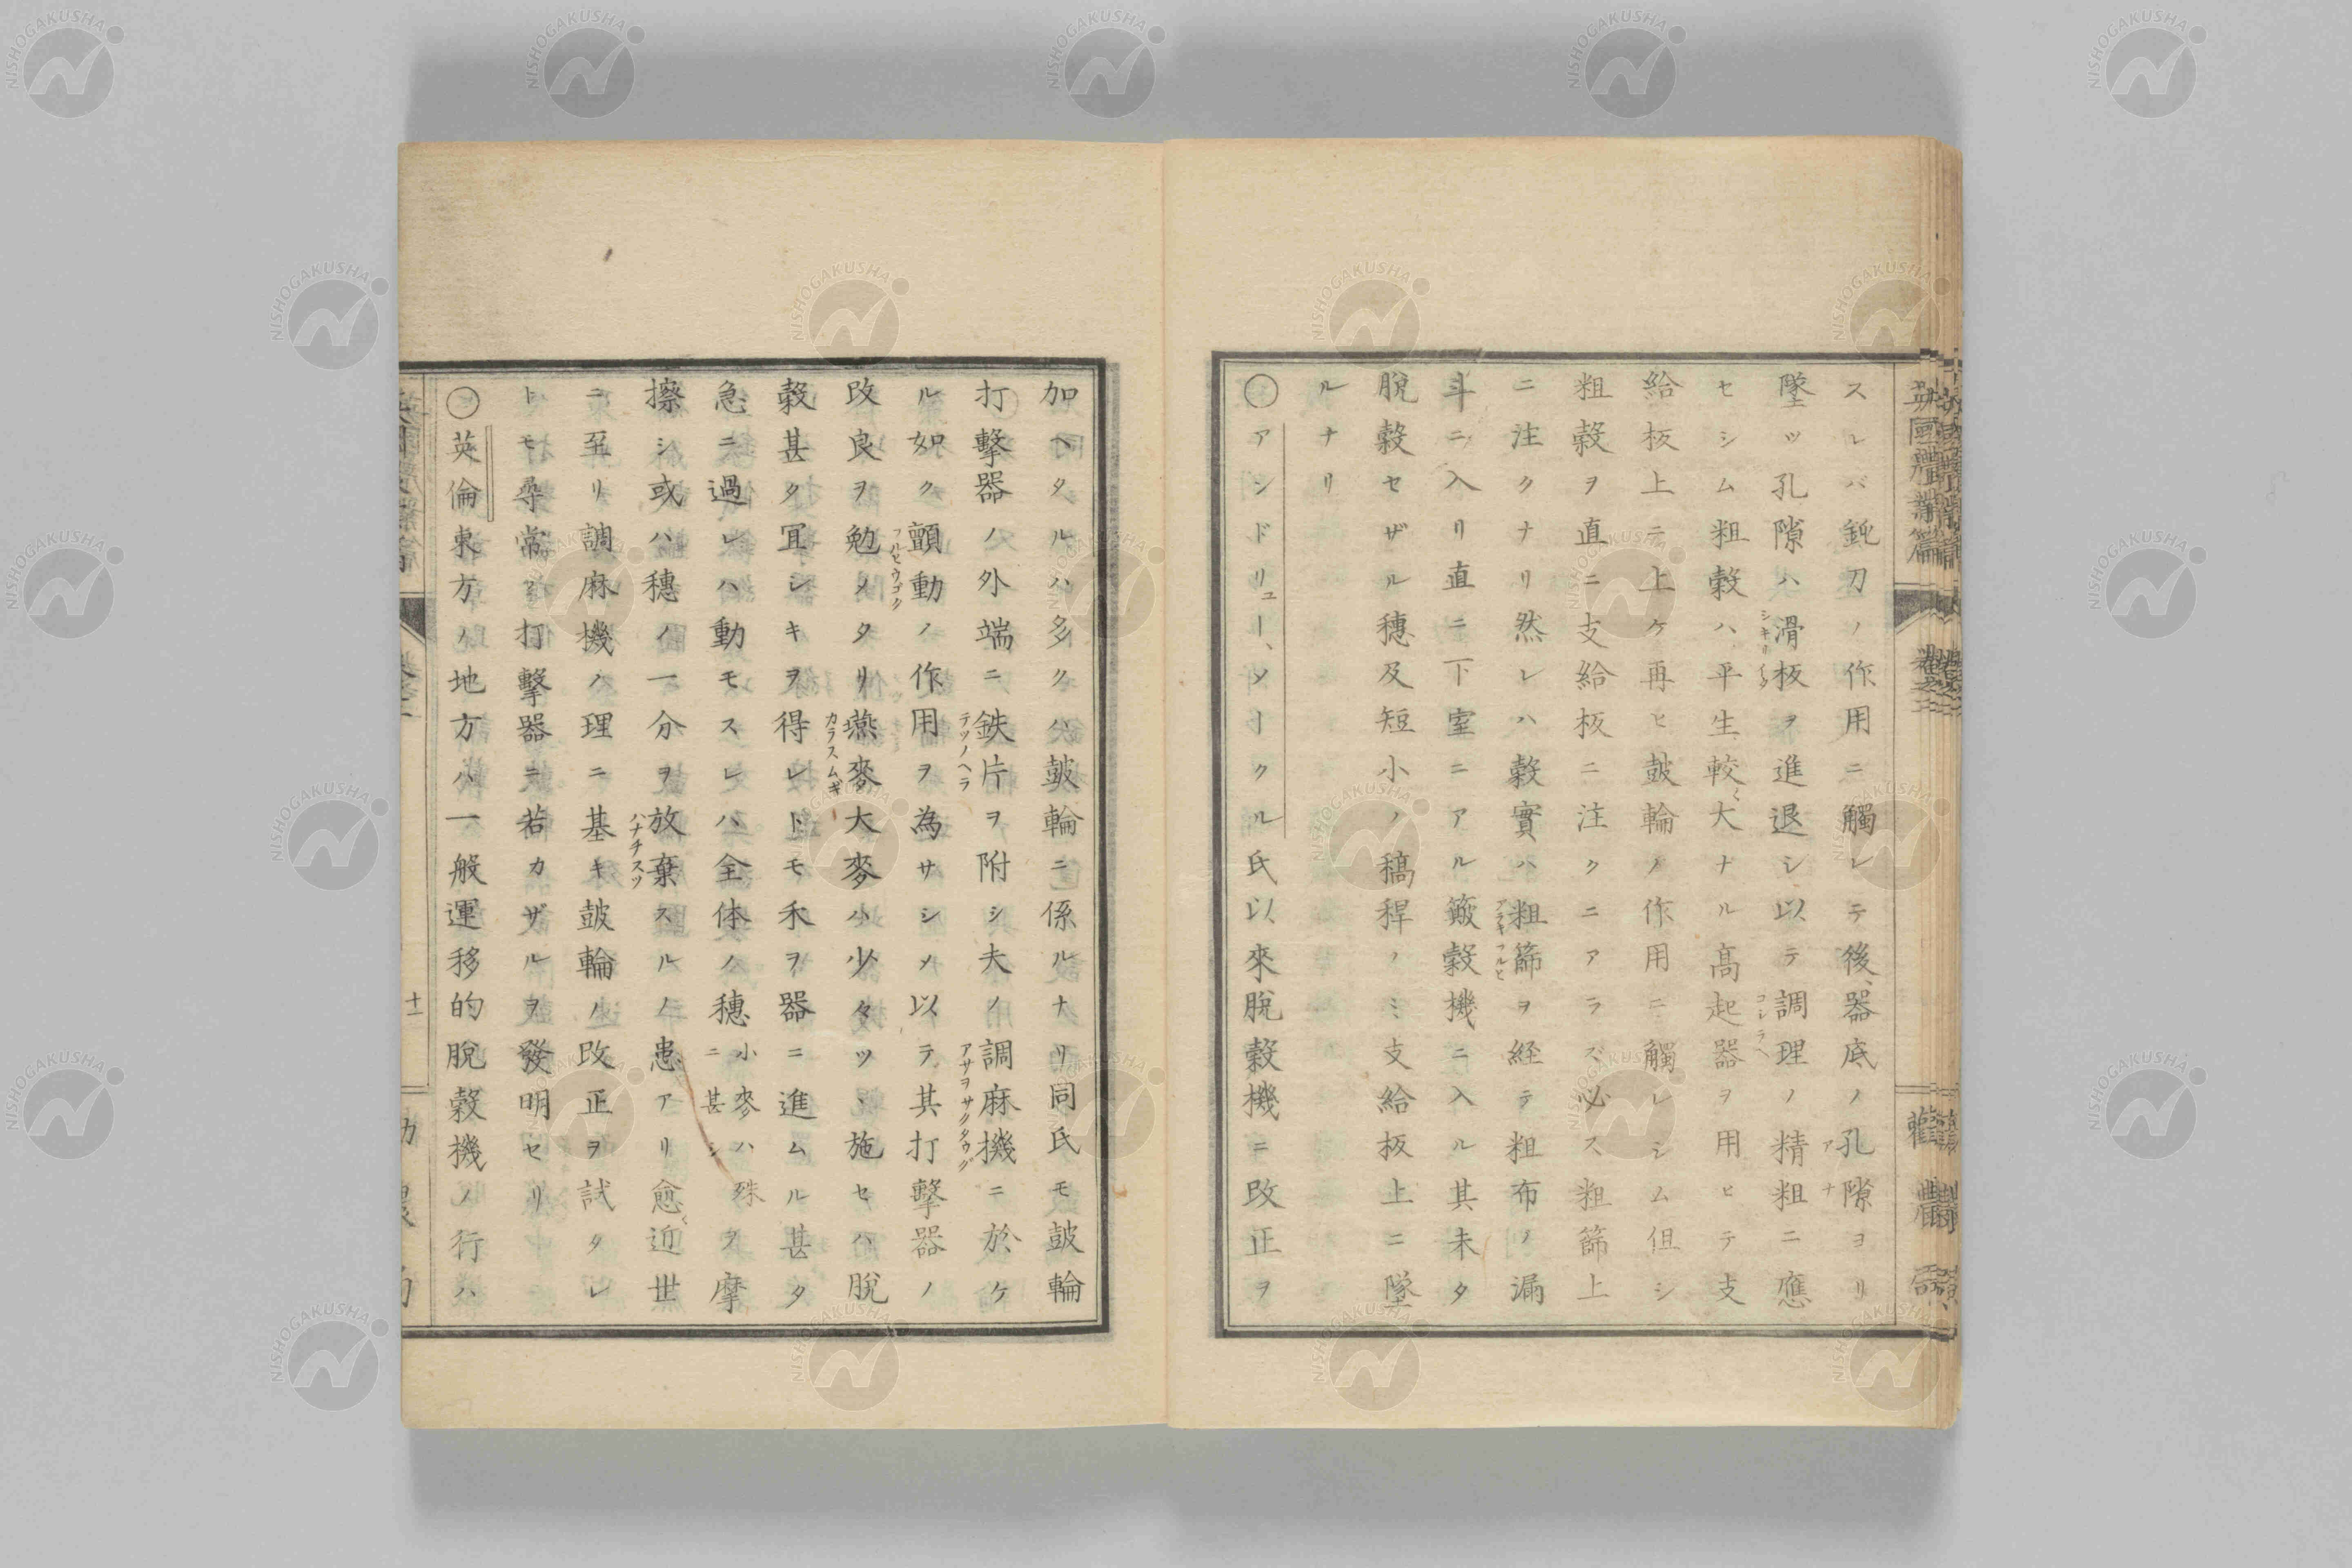 スレバ鈍刀ノ作用ニ觸レテ後、器底ノ孔隙ヨリ
墜ツ孔隙ハ滑板ヲ進退シ以テ調理ノ精粗ニ應
セシム粗穀ハ平生較大ナル高起器ヲ用ヒテ支
給板上ニ上ケ再ヒ皷輪ノ作用ニ觸レシム但シ
粗穀ヲ直ニ支給板ニ注クニアラズ必ス粗篩上
ニ注クナリ然レハ穀實ハ粗篩ヲ経テ粗布ノ漏
斗ニ入リ直ニ下室ニアル簸穀機ニ入ル其未タ
脫穀セザル穗及短小ノ稿稈ノミ支給板上ニ墜
ルナリ
〇アンドリュー、ソークル氏以來脫穀機ニ改正ヲ
加ヘタルハ多クハ皷輪ニ係ルナリ同氏モ皷輪
打擊器ノ外端ニ鉄片ヲ附シ夫ノ調麻機ニ於ケ
ル如ク顫動ノ作用ヲ為サシメ以テ其打擊器ノ
改良ヲ勉メタリ燕麥大麥ハ少タツヽ施セハ脫
穀甚タ冝シキヲ得レトモ禾ヲ器ニ進ムル甚タ
急ニ過レハ動モスレハ全体ノ穗小麥ハ殊ニ甚シヲ摩
擦シ或ハ穗ノ一分ヲ放棄スルノ患アリ愈近世
ニ至リ調麻機ノ理ニ基キ皷輪ノ改正ヲ試タレ
トモ尋常ノ打擊器ニ若カザルヲ發明セリ
〇英倫東方ノ地方ハ一般運移的脫穀機ノ行ハ